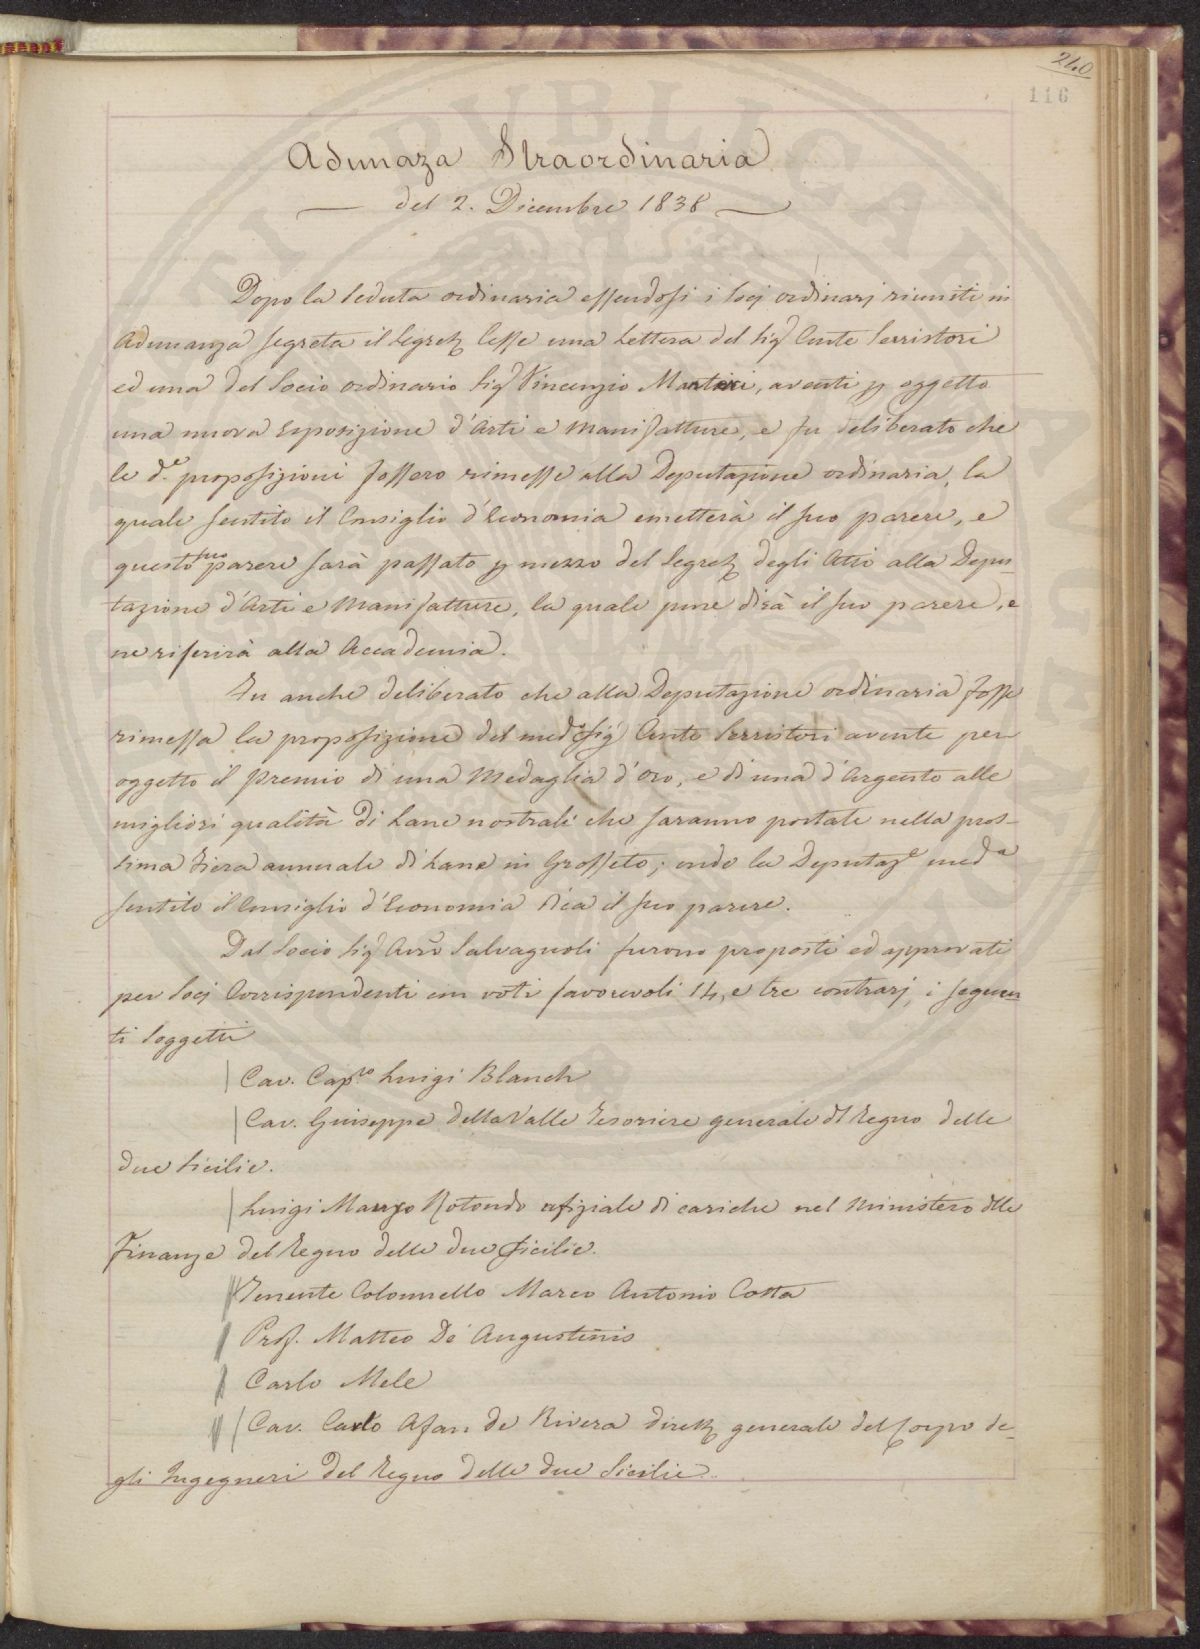 240
116
Adunaza Straordinaria
del 2. Dicembre 1838
Dopo la Seduta ordinaria essendosi i Socj ordinarj riuniti in
Adunanza segreta il Segret.º lesse una Lettera del Sig.r Conte Serristori
ed una del Socio ordinario Sig.r Vincenzio Martini, aventi p oggetto
una nuova Esposizione d'Arti e Manifatture, e fu deliberato che
le d.e proposizioni fossero rimesse alla Deputazione ordinaria, la
quale sentito il Consiglio d'Economia emetterà il suo parere, e
questo suo parere sarà passato p mezzo del Segret.º degli Atti alla Depu-
tazione d'Arti e Manifatture, la quale pure dirà il suo parere, e
ne riferirà alla Accademia.
Fu anche deliberato che alla Deputazione ordinaria fosse
rimessa la proposizione del med.o Sig.r Conte Serristori avente per
oggetto il premio di una Medaglia d'oro, e di una d'Argento alle
migliori qualità di Lane nostrali che saranno portate nella pros-
sima Fiera annuale di Lane in Grosseto; onde la Deputaz.e med.a
sentito il Consiglio d'Economia dica il suo parere.
Dal Socio Sig.r Avv.o Salvagnoli furono proposti ed approvati
per Socj Corrispondenti con voti favorevoli 14, e tre contrarj, i seguen
ti Soggetti
Cav. Cap.no Luigi Blanch
Cav. Giuseppe della Valle Tesoriere generale dl Regno delle
due Sicilie.
Luigi Manzo Rotondo ofiziale di cariche nel Ministero dlle
Finanze del Regno delle due Sicilie.
Tenente Colonnello Marco Antonio Costa
Prof. Matteo De Augustinis
Carlo Mele
Cav. Carlo Afan de Rivera dirett.e generale del Corpo de-
gli Ingegneri del Regno delle due Sicilie.